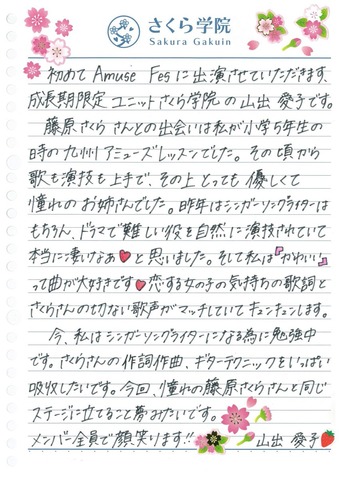 さくら学院
Sakura Gakuin
初めて Amuse Fes に出演させていただきます、
成長期限定ユニットさくら学院の山出愛子です。
藤原さくらさんとの出会いは私が小学5年生の
時の九州アミューズレッスンでした。その頃から
歌も演技も上手で、その上とっても優しくて
憧れのお姉さんでした。昨年はシンガーソングライターは
もちろん、ドラマで難しい役を自然に演技されていて
本当に凄いなぁ♥と思いました。そして私は「かわいい」
って曲が大好きです♥恋する女の子の気持ちの歌詞と
さくらさんの切ない歌声がマッチしていてキュンキュンします。
今、私はシンガーソングライターになる為に勉強中
です。さくらさんの作詞作曲、ギターテクニックをいっぱい
吸収したいです。今回、憧れの藤原さくらさんと同じ
ステージに立てること夢みたいです。
メンバー全員で顔笑ります!!
山出 愛子